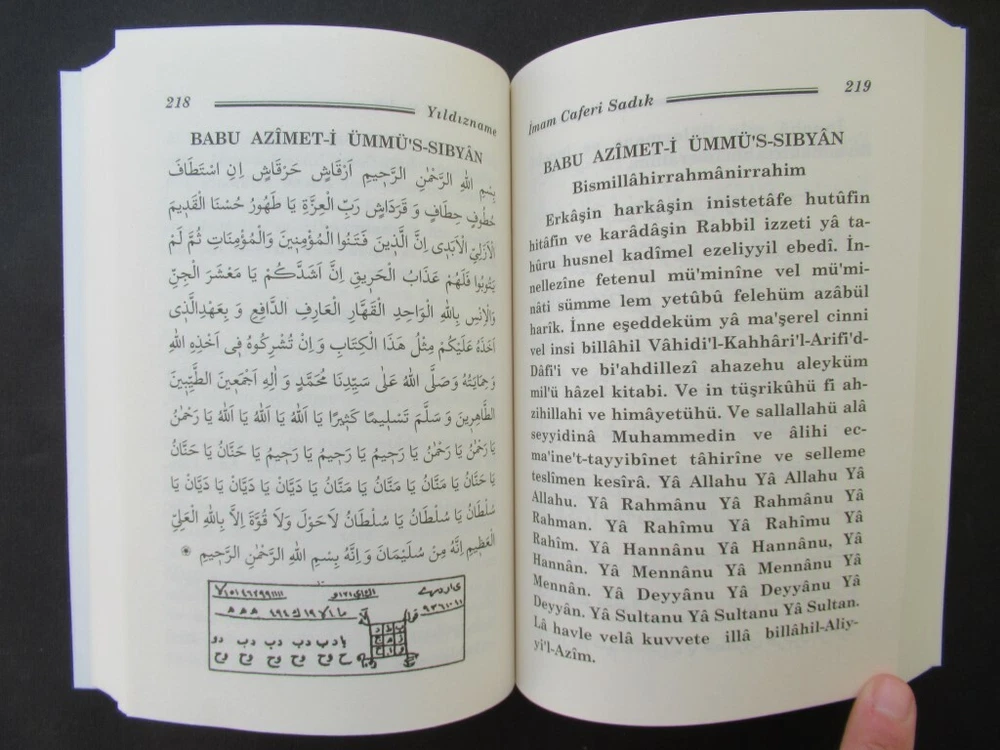 218
Yıldızname
BABU AZÎMET-İ ÜMMÜ'S-SIBYÂN
بِسْمِ اللهِ الرَّحْمٰنِ الرَّحِيمِ اَرْقَاشٍ حَرْقَاشٍ اِنِ اسْتَطَافَ
خُطُوفٍ حِطَافٍ وَ قَرَدَاشٍ رَبِّ الْعِزَّةِ يَا طَهُورُ حُسْنَا الْقَدِيمَ
الْاَزَلِيِّ الْاَبَدِى اِنَّ الَّذِينَ فَتَنُوا الْمُؤْمِنِينَ وَالْمُؤْمِنَاتِ ثُمَّ لَمْ
يَتُوبُوا فَلَهُمْ عَذَابُ الْحَرِيقِ اِنَّ اَشَدَّكُمْ يَا مَعْشَرَ الْجِنِّ
وَالْاِنْسِ بِاللهِ الْوَاحِدِ الْقَهَّارِ الْعَارِفِ الدَّافِعِ وَ بِعَهْدِالَّذِى
اَخَذَهُ عَلَيْكُمْ مِثْلُ هٰذَا الْكِتَابِ وَ اِنْ تُشْرِكُوهُ فِى اَخْذِهِ اللهِ
وَحِمَايَتُهُ وَصَلَّى اللهُ عَلٰى سَيِّدِنَا مُحَمَّدٍ وَ اٰلِهِ اَجْمَعِينَ الطَّيِّبِينَ
الطَّاهِرِينَ وَ سَلَّمَ تَسْلِيمًا كَثِيرًا يَا اَللهُ يَا اَللهُ يَا اَللهُ يَا رَحْمٰنُ
يَا رَحْمٰنُ يَا رَحْمٰنُ يَا رَحِيمُ يَا رَحِيمُ يَا رَحِيمُ يَا حَنَّانُ يَا حَنَّانُ
يَا حَنَّانُ يَا مَنَّانُ يَا مَنَّانُ يَا مَنَّانُ يَا دَيَّانُ يَا دَيَّانُ يَا دَيَّانُ يَا
سُلْطَانُ يَا سُلْطَانُ يَا سُلْطَانُ لَاحَوْلَ وَلَا قُوَّةَ اِلَّا بِاللهِ الْعَلِىِّ
الْعَظِيمِ اِنَّهُ مِنْ سُلَيْمَانَ وَ اِنَّهُ بِسْمِ اللهِ الرَّحْمٰنِ الرَّحِيمِ
İmam Caferi Sadık
219
BABU AZÎMET-İ ÜMMÜ'S-SIBYÂN
Bismillâhirrahmânirrahim
Erkâşin harkâşin inistetâfe hutûfin
hitâfin ve karâdâşin Rabbil izzeti yâ ta-
hûru husnel kadîmel ezeliyyil ebedî. İn-
nellezîne fetenul mü'minîne vel mü'mi-
nâti sümme lem yetûbû felehüm azâbül
harîk. İnne eşeddeküm yâ ma'şerel cinni
vel insi billâhil Vâhidi'l-Kahhâri'l-Arifi'd-
Dâfi'i ve bi'ahdillezî ahazehu aleyküm
mil'ü hâzel kitabi. Ve in tüşrikûhü fi ah-
zihillahi ve himâyetühü. Ve sallallahü alâ
seyyidinâ Muhammedin ve âlihi ec-
ma'ine't-tayyibînet tâhirîne ve selleme
teslîmen kesîrâ. Yâ Allahu Yâ Allahu Yâ
Allahu. Yâ Rahmânu Yâ Rahmânu Yâ
Rahman. Yâ Rahîmu Yâ Rahîmu Yâ
Rahîm. Yâ Hannânu Yâ Hannânu, Yâ
Hannân. Yâ Mennânu Yâ Mennânu Yâ
Mennân. Yâ Deyyânu Yâ Deyyânu Yâ
Deyyân. Yâ Sultanu Yâ Sultanu Yâ Sultan.
Lâ havle velâ kuvvete illâ billâhil-Aliy-
yi'l-Azîm.